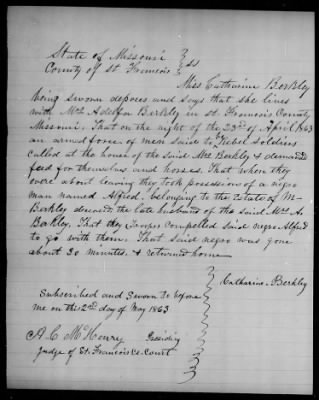 State of Missouri
County of St. Francois } SS
Miss Catharine Berkley
being sworn deposes and says that she lives
with Mrs Berkley in St. Francois County
Missouri. That on the night of the 23d of April 1863
an armed force of men said to Rebel Soldiers
called at the house of the said Mrs Berkley & demand
feed for themselves and horses. That when they
were about leaving they took possession of a negro
man named Alfred, belonging to the Estate of
Berkley deceased the late husband of the said Mrs A.
Berkley. That they compelled said negro Alfred
to go with them. That said negro was gone
about 30 minutes & returned home
Catharine Berkley
Subscribed and Sworn to before
me on this 2nd day of May 1863
A. C. McHenry Presiding
Judge of St. Francois Co. Court